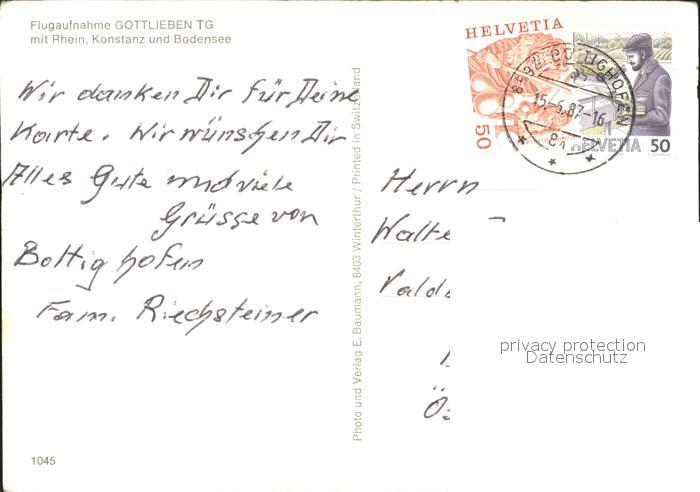 Flugaufnahme GOTTLIEBEN TG
mit Rhein, Konstanz und Bodensee
Wir danken Dir für Deine
Karte. Wir wünschen Dir
Alles Gute und viele
Grüsse von
Bottighofen
Fam. Riechsteiner
1045
Photo und Verlag E. Baumann, 8403 Winterthur / Printed in Switzerland
HELVETIA
50
HELVETIA 50
BOTTIGHOFEN
15.-6.87-16
Herrn
Walte
privacy protection
Datenschutz